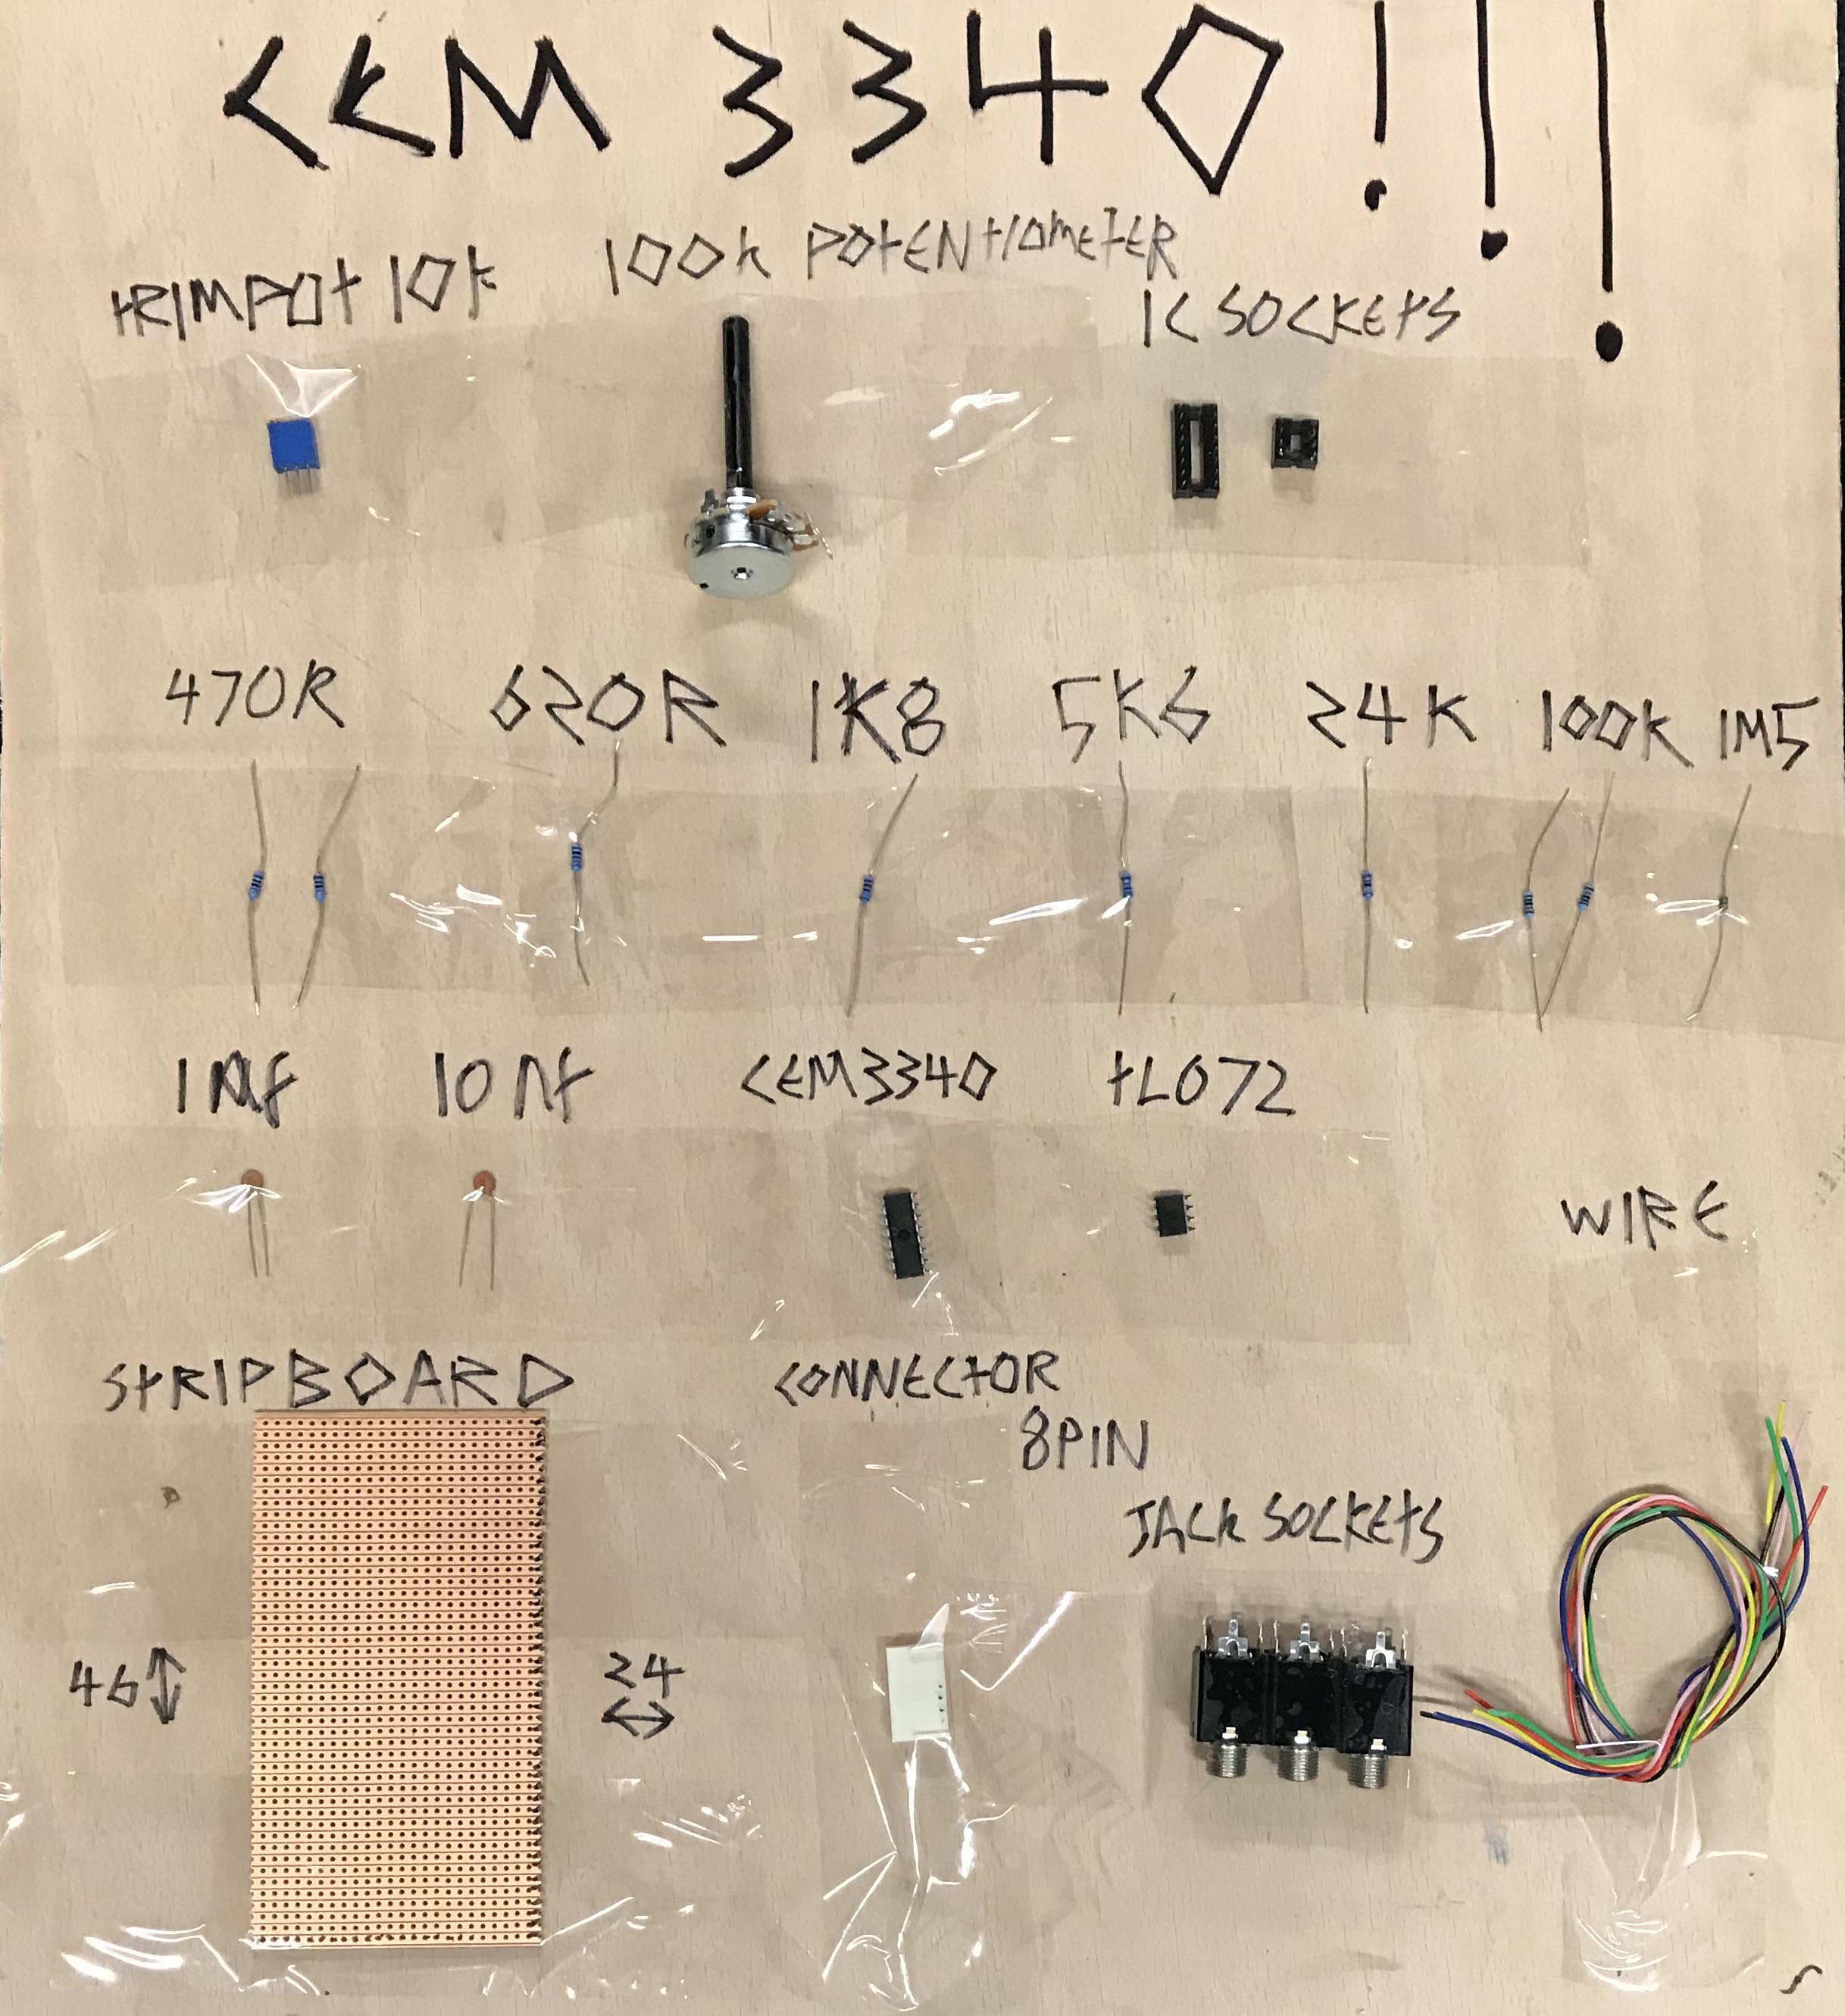 CEM 3340!!!
TRIMPOT 10K
100K POTENTIOMETER
IC SOCKETS
470R 620R 1K8 5K6 24K 100K 1M5
1nf 10nf CEM3340 TL072
WIRE
STRIPBOARD
CONNECTOR
8PIN
JACK SOCKETS
46 24